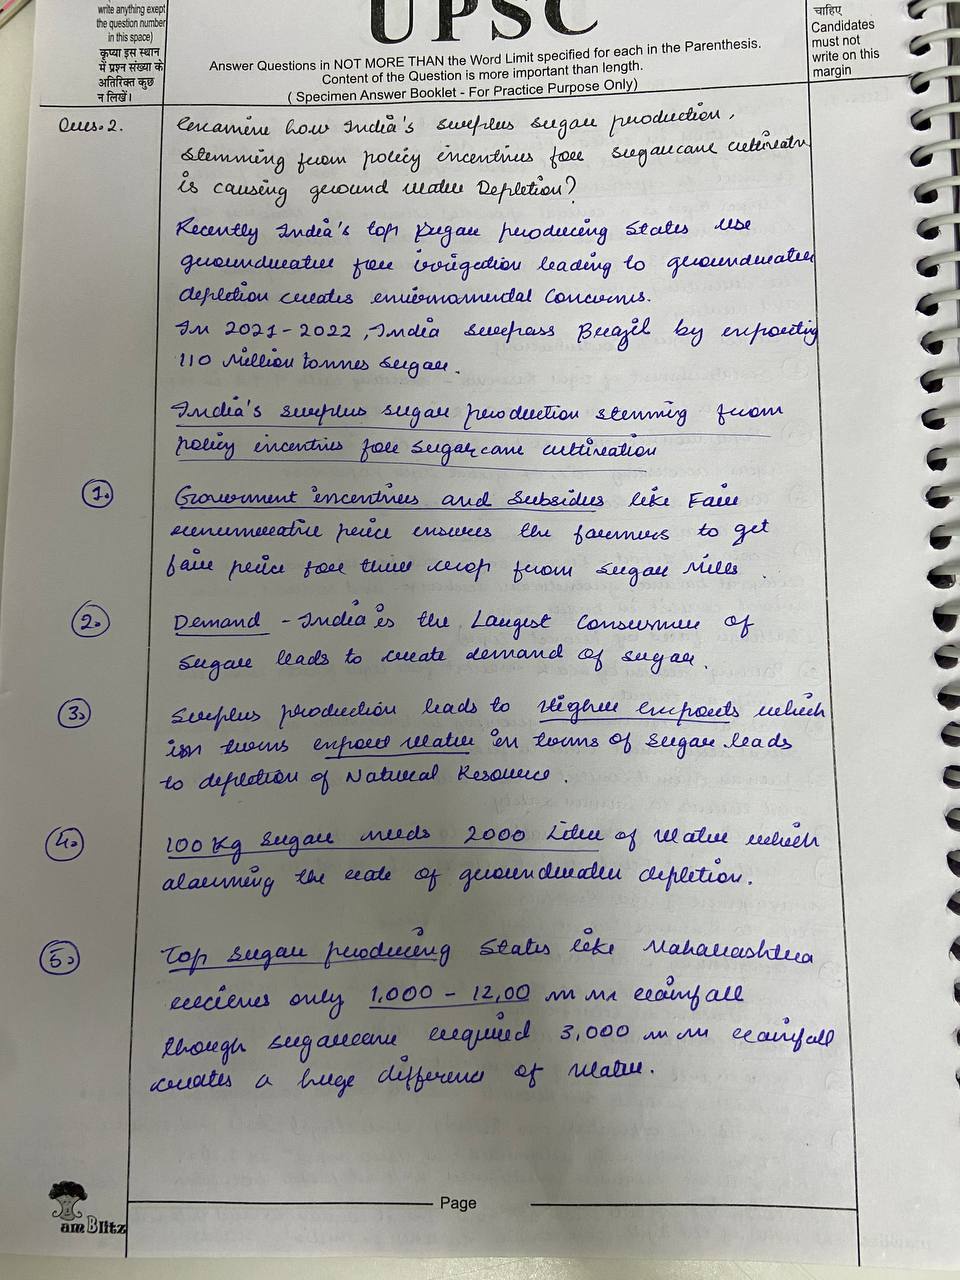 UPSC
write anything exept
the question number
in this space)
कृप्या इस स्थान
में प्रश्न संख्या के
अतिरिक्त कुछ
न लिखें।
Answer Questions in NOT MORE THAN the Word Limit specified for each in the Parenthesis.
Content of the Question is more important than length.
( Specimen Answer Booklet - For Practice Purpose Only)
चाहिए
Candidates
must not
write on this
margin
Ques. 2. Examine how India's surplus sugar production,
stemming from policy incentives for sugarcane cultivatn
is causing ground water Depletion?
Recently India's top sugar producing States use
groundwater for irrigation leading to groundwater
depletion creates environmental Concerns.
In 2021-2022, India surpass Brazil by exporting
110 Million tonnes sugar.
India's surplus sugar production stemming from
policy incentives for sugarcane cultivation
1. Government incentives and subsidies like Fair
renumerative price ensures the farmers to get
fair price for their crop from sugar Mills.
2. Demand - India is the Largest Consumer of
Sugar leads to create demand of sugar.
3. Surplus production leads to Higher exports which
in turns export water in terms of sugar leads
to depletion of Natural Resource.
4. 100 Kg Sugar needs 2000 Liter of Water which
alarming the rate of groundwater depletion.
5. Top sugar producing States like Maharashtra
recieves only 1,000 - 12,00 mm rainfall
though sugarcane required 3,000 mm rainfall
creates a huge difference of water.
Page
am Blitz